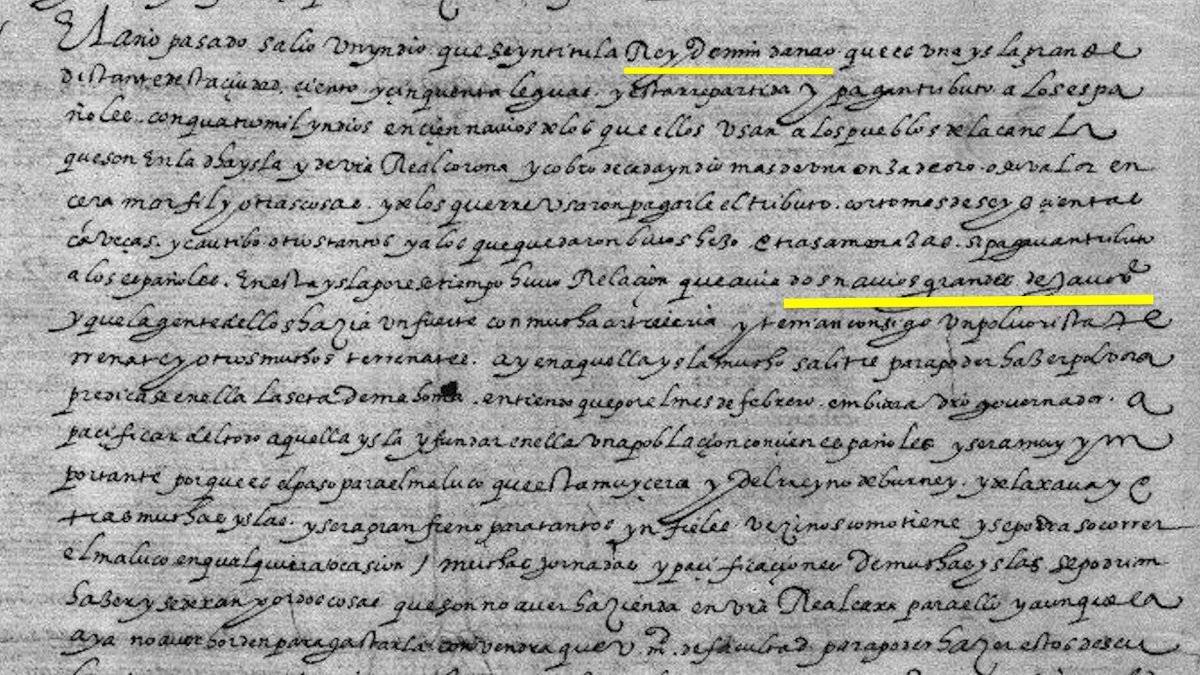 El año pasado salio un yndio que se yntitula Rey de min danao que es una ysla grande
distante desta ciudad ciento y cinquenta leguas y esta repartida y pagan tributo a los espa
ñoles con quatro mil yndios en cien navios de los que ellos usan a los pueblos de la canela
que son en la dha ysla y de vra Real corona y cobro de cada yndio mas de una onza de oro o su valor en
cera marfil y otras cosas y de los que rreusaron pagarle el tributo corto mas de seys çientas
caveças y cautibo otros tantos y a los que quedaron bivos hizo otras amenazas si pagavan tributo
a los españoles En esta ysla por este tiempo huvo Relaçion que avia dos navios grandes de
y que la gente dellos hazia un fuerte con mucha artilleria y tenian consigo un polvorista de
rrenate y otros muchos terrenates ay en aquella ysla mucho salitre para poder hazer polvora
predicase en ella la seta de mahoma entiendo que por el mes de febrero embiara vro governador a
paçificar del todo aquella ysla y fundar en ella una poblaçion con çien españoles y sera muy ym
portante porque es el paso para el maluco que esta muy çerca y del rreyno de burney y de la xava y o
tras muchas yslas y sera gran freno para tantos ynfieles vezinos como tiene y se podra socorrer
el maluco en qualquiera ocasion / muchas jornadas y paçificaçiones de muchas yslas se podrian
hazer y se dexan por dos cosas que son no aver hazienda en vra Real caxa para ello y aunque la
aya no aver horden para gastarla convendra que V. M. de facultad para poder hazer estos descu